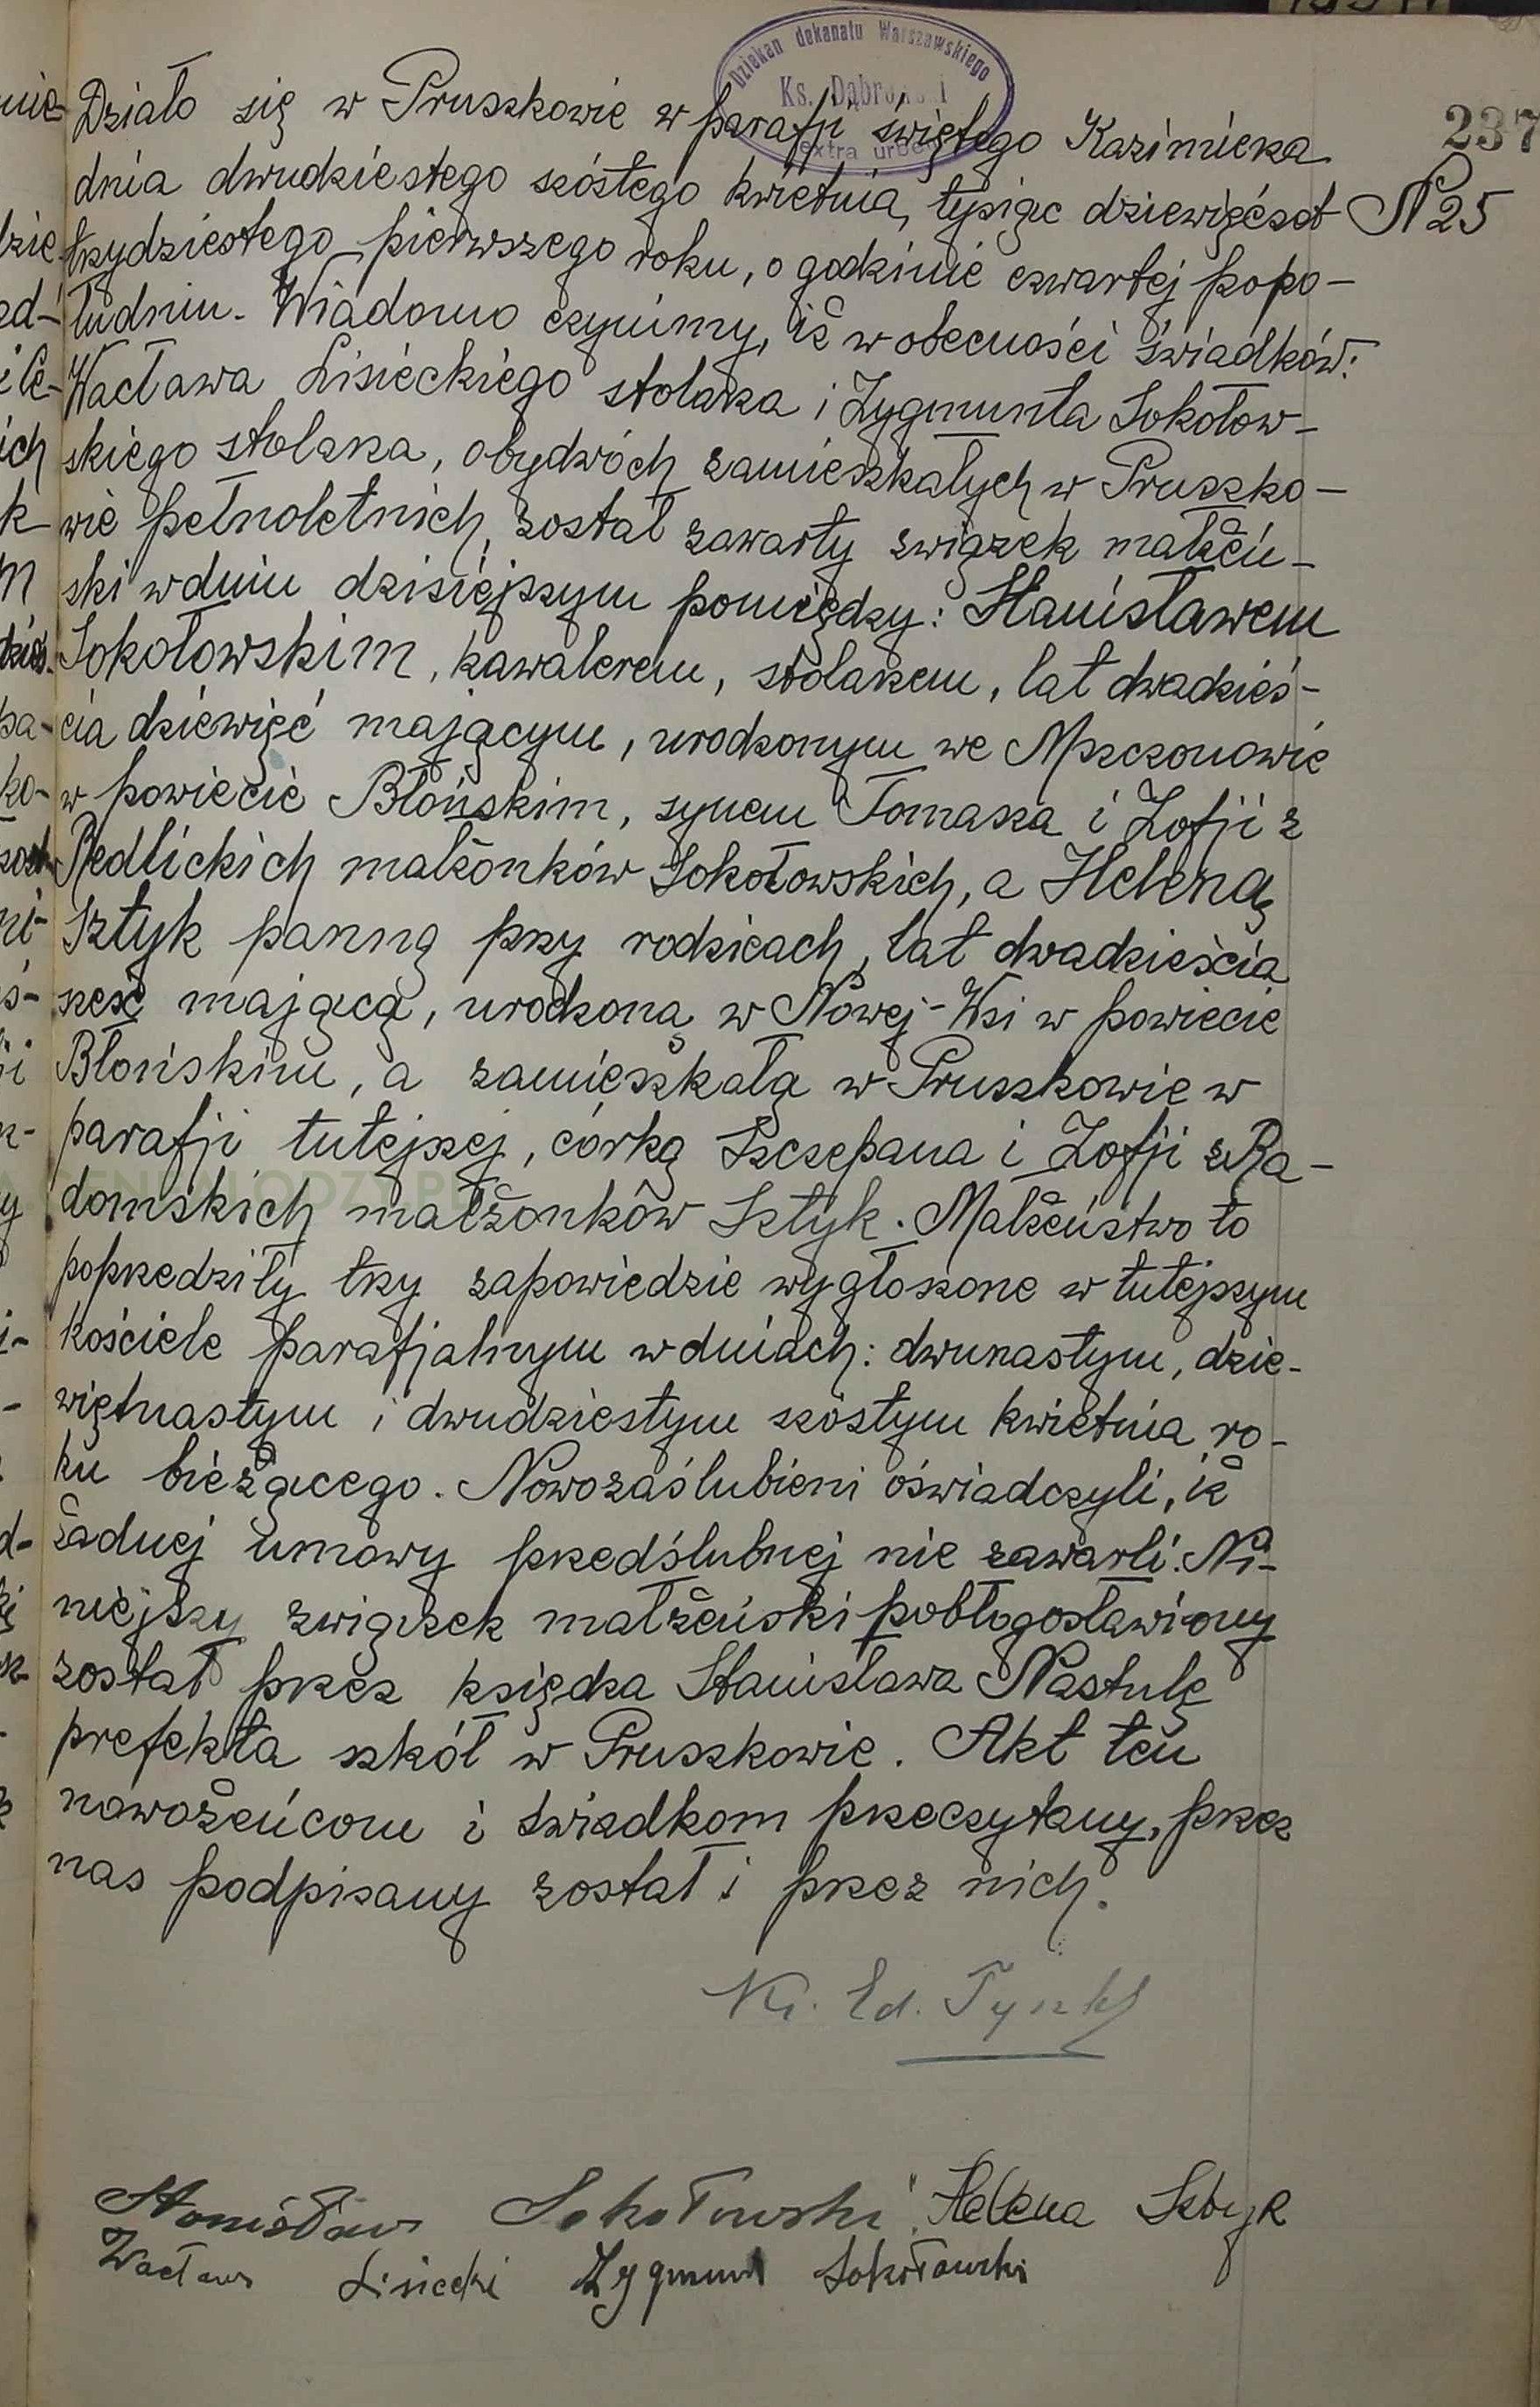 Dziekan dekanatu Warszawskiego
Ks. Dąbrowski
extra urbem
237
N 25
Działo się w Pruszkowie w parafji świętego Kazimierza
dnia dwudziestego szóstego kwietnia, tysiąc dziewięćset
trzydziestego pierwszego roku, o godzinie czwartej popo-
łudniu. Wiadomo czynimy, iż w obecności świadków:
Wacława Lisieckiego stolarza i Zygmunta Sokołow-
skiego stolarza, obydwóch zamieszkałych w Pruszko-
wie pełnoletnich, został zawarty związek małżeń-
ski w dniu dzisiejszym pomiędzy: Stanisławem
Sokołowskim, kawalerem, stolarzem, lat dwadzieś-
cia dziewięć mającym, urodzonym we Mszczonowie
w powiecie Błońskim, synem Tomasza i Zofji z
Redlickich małżonków Sokołowskich, a Heleną
Sztyk panną przy rodzicach, lat dwadzieścia
sześć mającą, urodzoną w Nowej-Wsi w powiecie
Błońskim, a zamieszkałą w Pruszkowie w
parafji tutejszej, córką Szczepana i Zofji z Ra-
domskich małżonków Sztyk. Małżeństwo to
poprzedziły trzy zapowiedzie wygłoszone w tutejszym
kościele parafjalnym w dniach: dwunastym, dzie-
więtnastym i dwudziestym szóstym kwietnia ro-
ku bieżącego. Nowozaślubieni oświadczyli, iż
żadnej umowy przedślubnej nie zawarli. Ni-
niejszy związek małżeński pobłogosławiony
został przez księdza Stanisława Nastulę
prefekta szkół w Pruszkowie. Akt ten
nowożeńcom i świadkom przeczytany, przez
nas podpisany został i przez nich.
Ks. Ed. Tyszka
Stanisław Sokołowski Helena Sztyk
Wacław Lisiecki Zygmunt Sokołowski